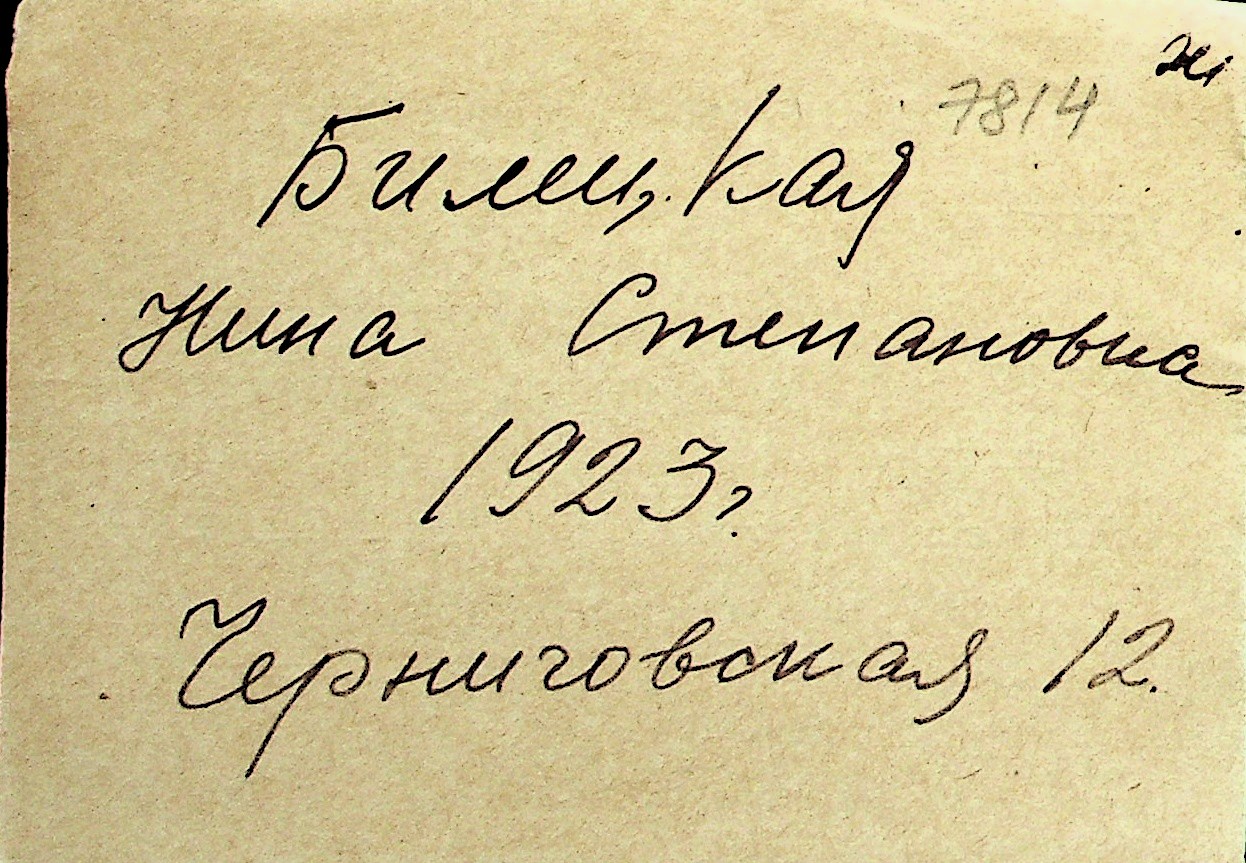 ж
7814
Билецкая
Нина Степановна
1923г.
Черниговская 12.